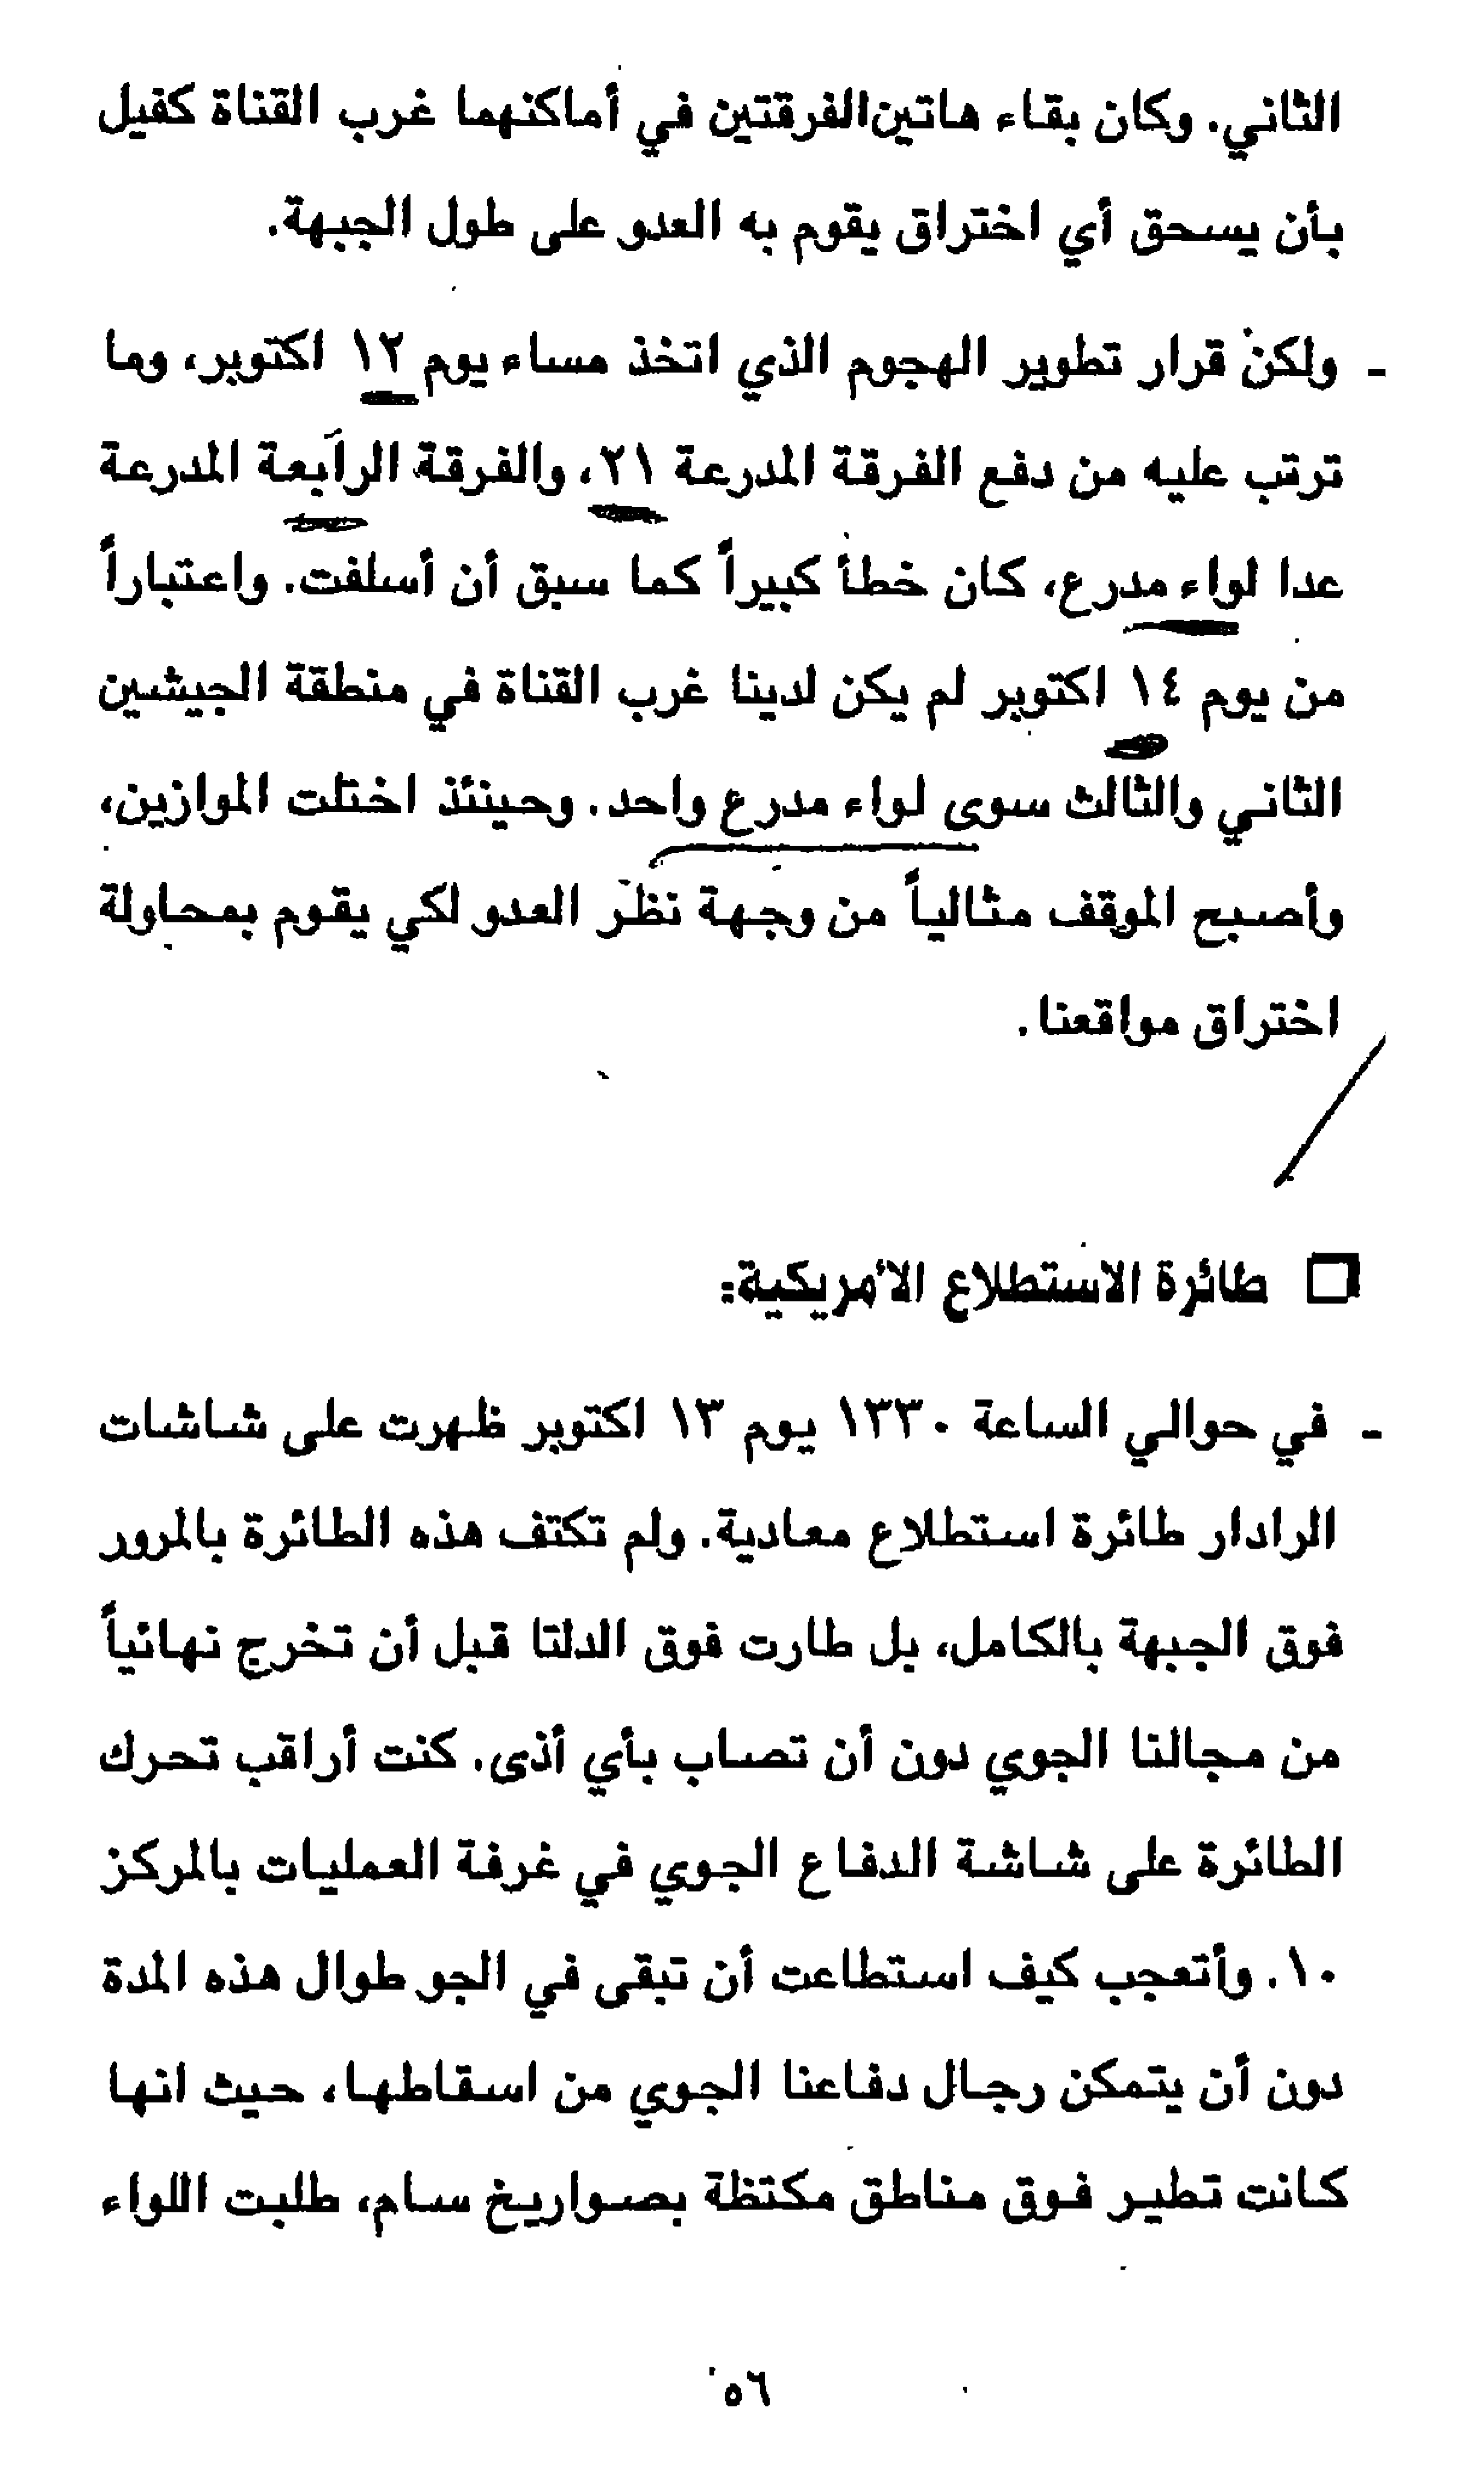 الثاني. وكان بقاء هاتين الفرقتين في أماكنهما غرب القناة كفيل
بأن يسحق أي اختراق يقوم به العدو على طول الجبهة.
- ولكن قرار تطوير الهجوم الذي اتخذ مساء يوم ١٢ اكتوبر، وما
ترتب عليه من دفع الفرقة المدرعة ٢١، والفرقة الرابعة المدرعة
عدا لواء مدرع، كان خطأ كبيراً كما سبق أن أسلفت. واعتباراً
من يوم ١٤ اكتوبر لم يكن لدينا غرب القناة في منطقة الجيشين
الثاني والثالث سوى لواء مدرع واحد. وحينئذ اختلت الموازين،
وأصبح الموقف مثالياً من وجهة نظر العدو لكي يقوم بمحاولة
اختراق مواقعنا.
□ طائرة الاستطلاع الأمريكية:
- في حوالي الساعة ١٣٣٠ يوم ١٣ اكتوبر ظهرت على شاشات
الرادار طائرة استطلاع معادية. ولم تكتف هذه الطائرة بالمرور
فوق الجبهة بالكامل، بل طارت فوق الدلتا قبل أن تخرج نهائياً
من مجالنا الجوي دون أن تصاب بأي أذى. كنت أراقب تحرك
الطائرة على شاشة الدفاع الجوي في غرفة العمليات بالمركز
١٠. وأتعجب كيف استطاعت أن تبقى في الجو طوال هذه المدة
دون أن يتمكن رجال دفاعنا الجوي من اسقاطها، حيث انها
كانت تطير فوق مناطق مكتظة بصواريخ سام، طلبت اللواء
٥٦